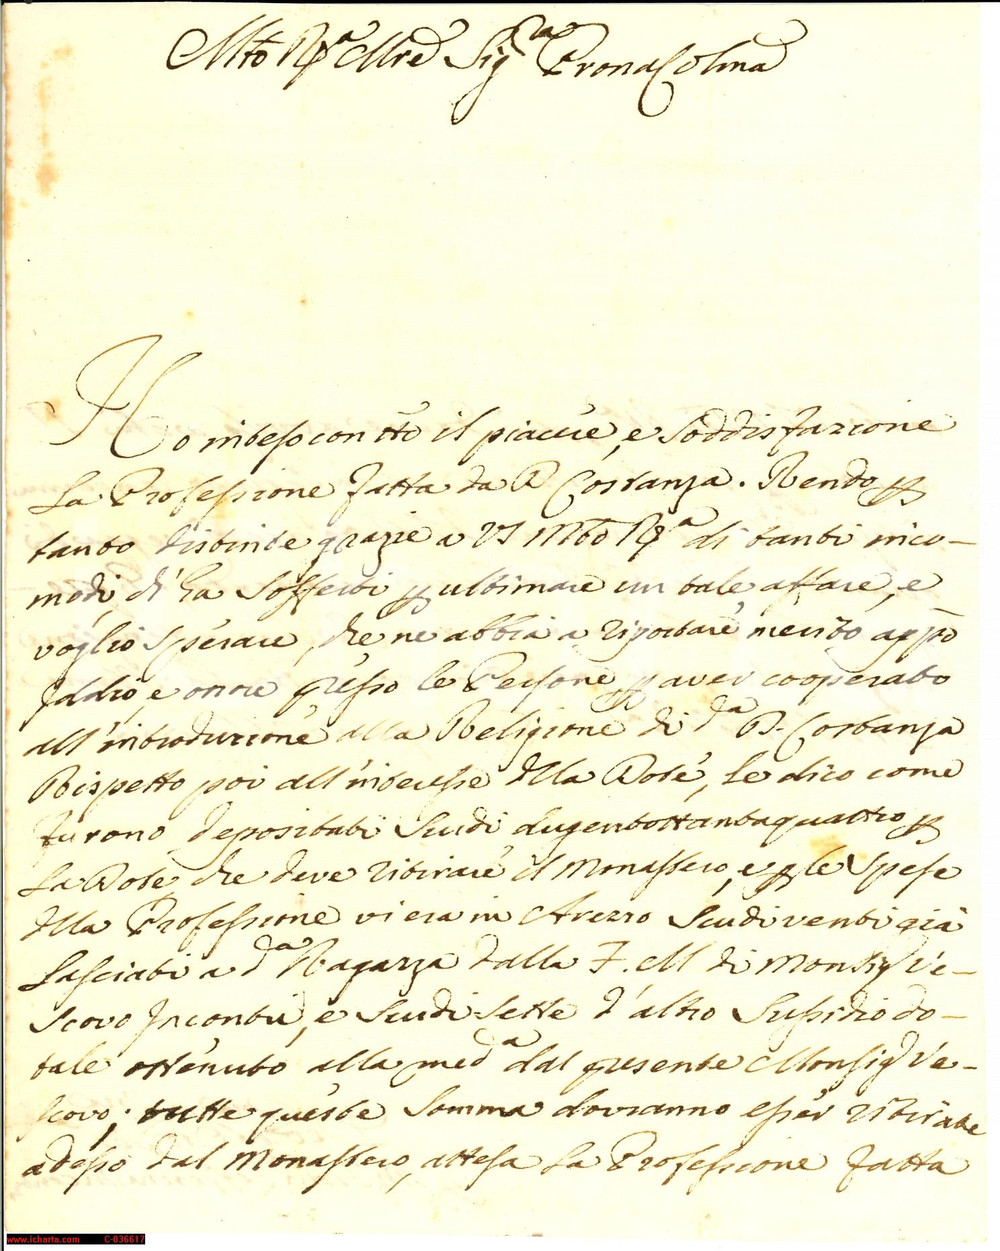 Mto Rda Mre Sigra Prona Colma
Ho inteso con tto il piacere, e soddisfazione
La Professione fatta da D. Costanza. Rendo p
tanto distinte grazie a VS Mto Rda di tanti inco-
modi ch'ha sofferti p ultimare un tale affare, e
voglio sperare, che ne abbia a riportare merito appo
Iddio e onore presso le Persone p aver cooperato
all'introduzione alla Religione di da D. Costanza
Rispetto poi all'interesse della Dote, le dico come
furono depositati scudi dugentottantaquattro p
La Dote che deve ritirare il Monastero, e p le spese
della Professione vi era in Arezzo Scudi venti già
Lasciati a da Ragazza dalla F. M. di Monsigr Ve-
scovo Incontri, e scudi sette d'altro Sussidio do-
tale ottenuto alla meda dal presente Monsigr Ve-
scovo; tutte queste somme dovranno esser ritirate
adesso dal Monastero, attesa La Professione fatta
www.icharta.com C-036617